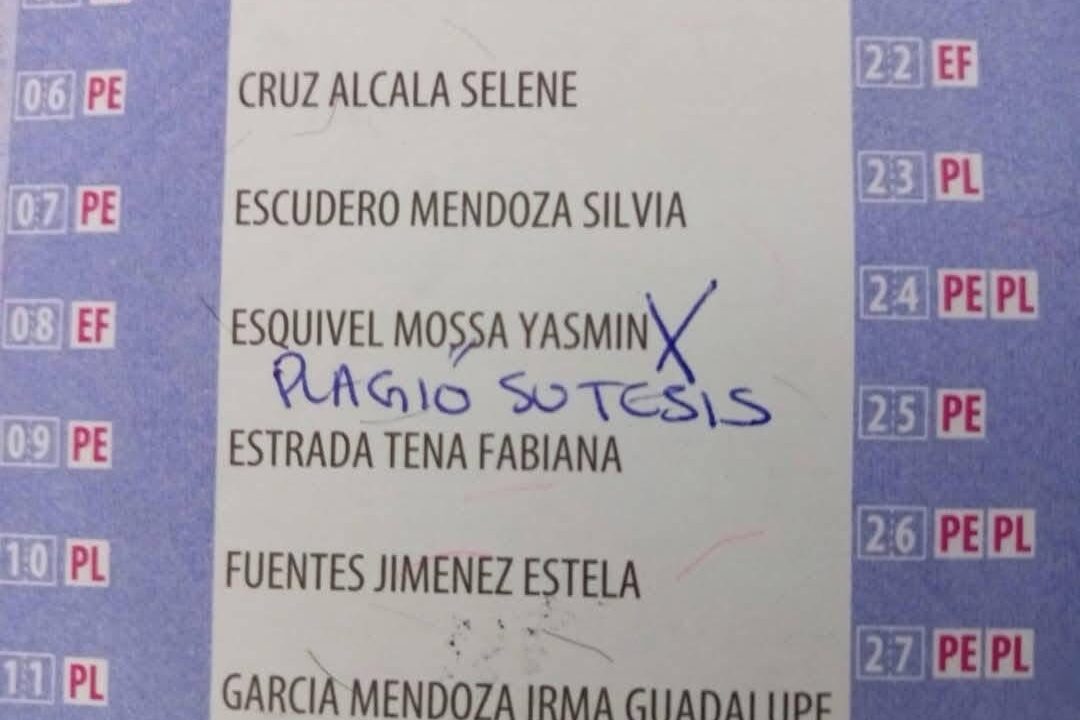 22 EF
06 PE CRUZ ALCALA SELENE
23 PL
07 PE ESCUDERO MENDOZA SILVIA
24 PE PL
08 EF ESQUIVEL MOSSA YASMIN X
PLAGIÓ SU TESIS
25 PE
09 PE ESTRADA TENA FABIANA
26 PE PL
10 PL FUENTES JIMENEZ ESTELA
27 PE PL
11 PL GARCIA MENDOZA IRMA GUADALUPE